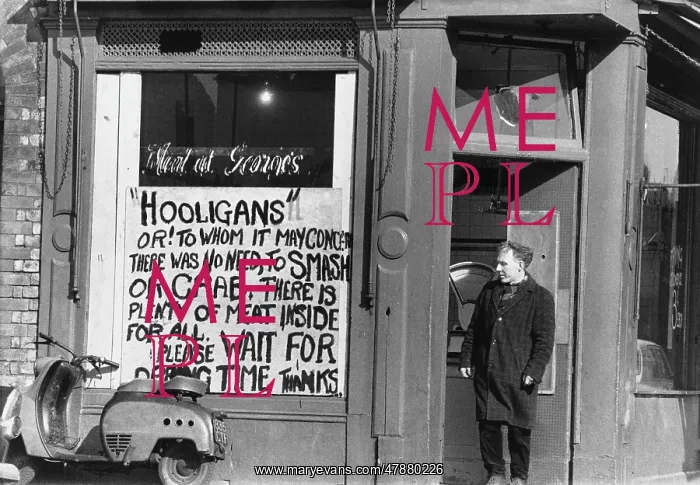 at Georgie's
"HOOLIGANS"
OR! TO WHOM IT MAY CONCER
THERE WAS NO NEED TO SMASH
OR GRAB THERE IS
PLENTY OF MEAT INSIDE
FOR ALL.
PLEASE WAIT FOR
TIME THANKS
ME
PL
ME
PL
www.maryevans.com/47880226